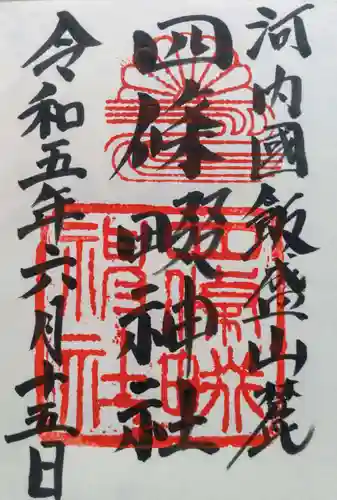 河内國飯盛山麓
四條畷神社
令和五年六月十五日
四條畷神社